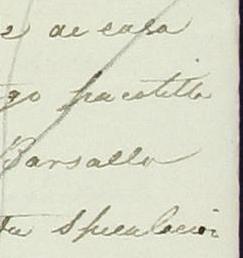 e de casa
go pacotilla
Barsallo
tu Speculacion